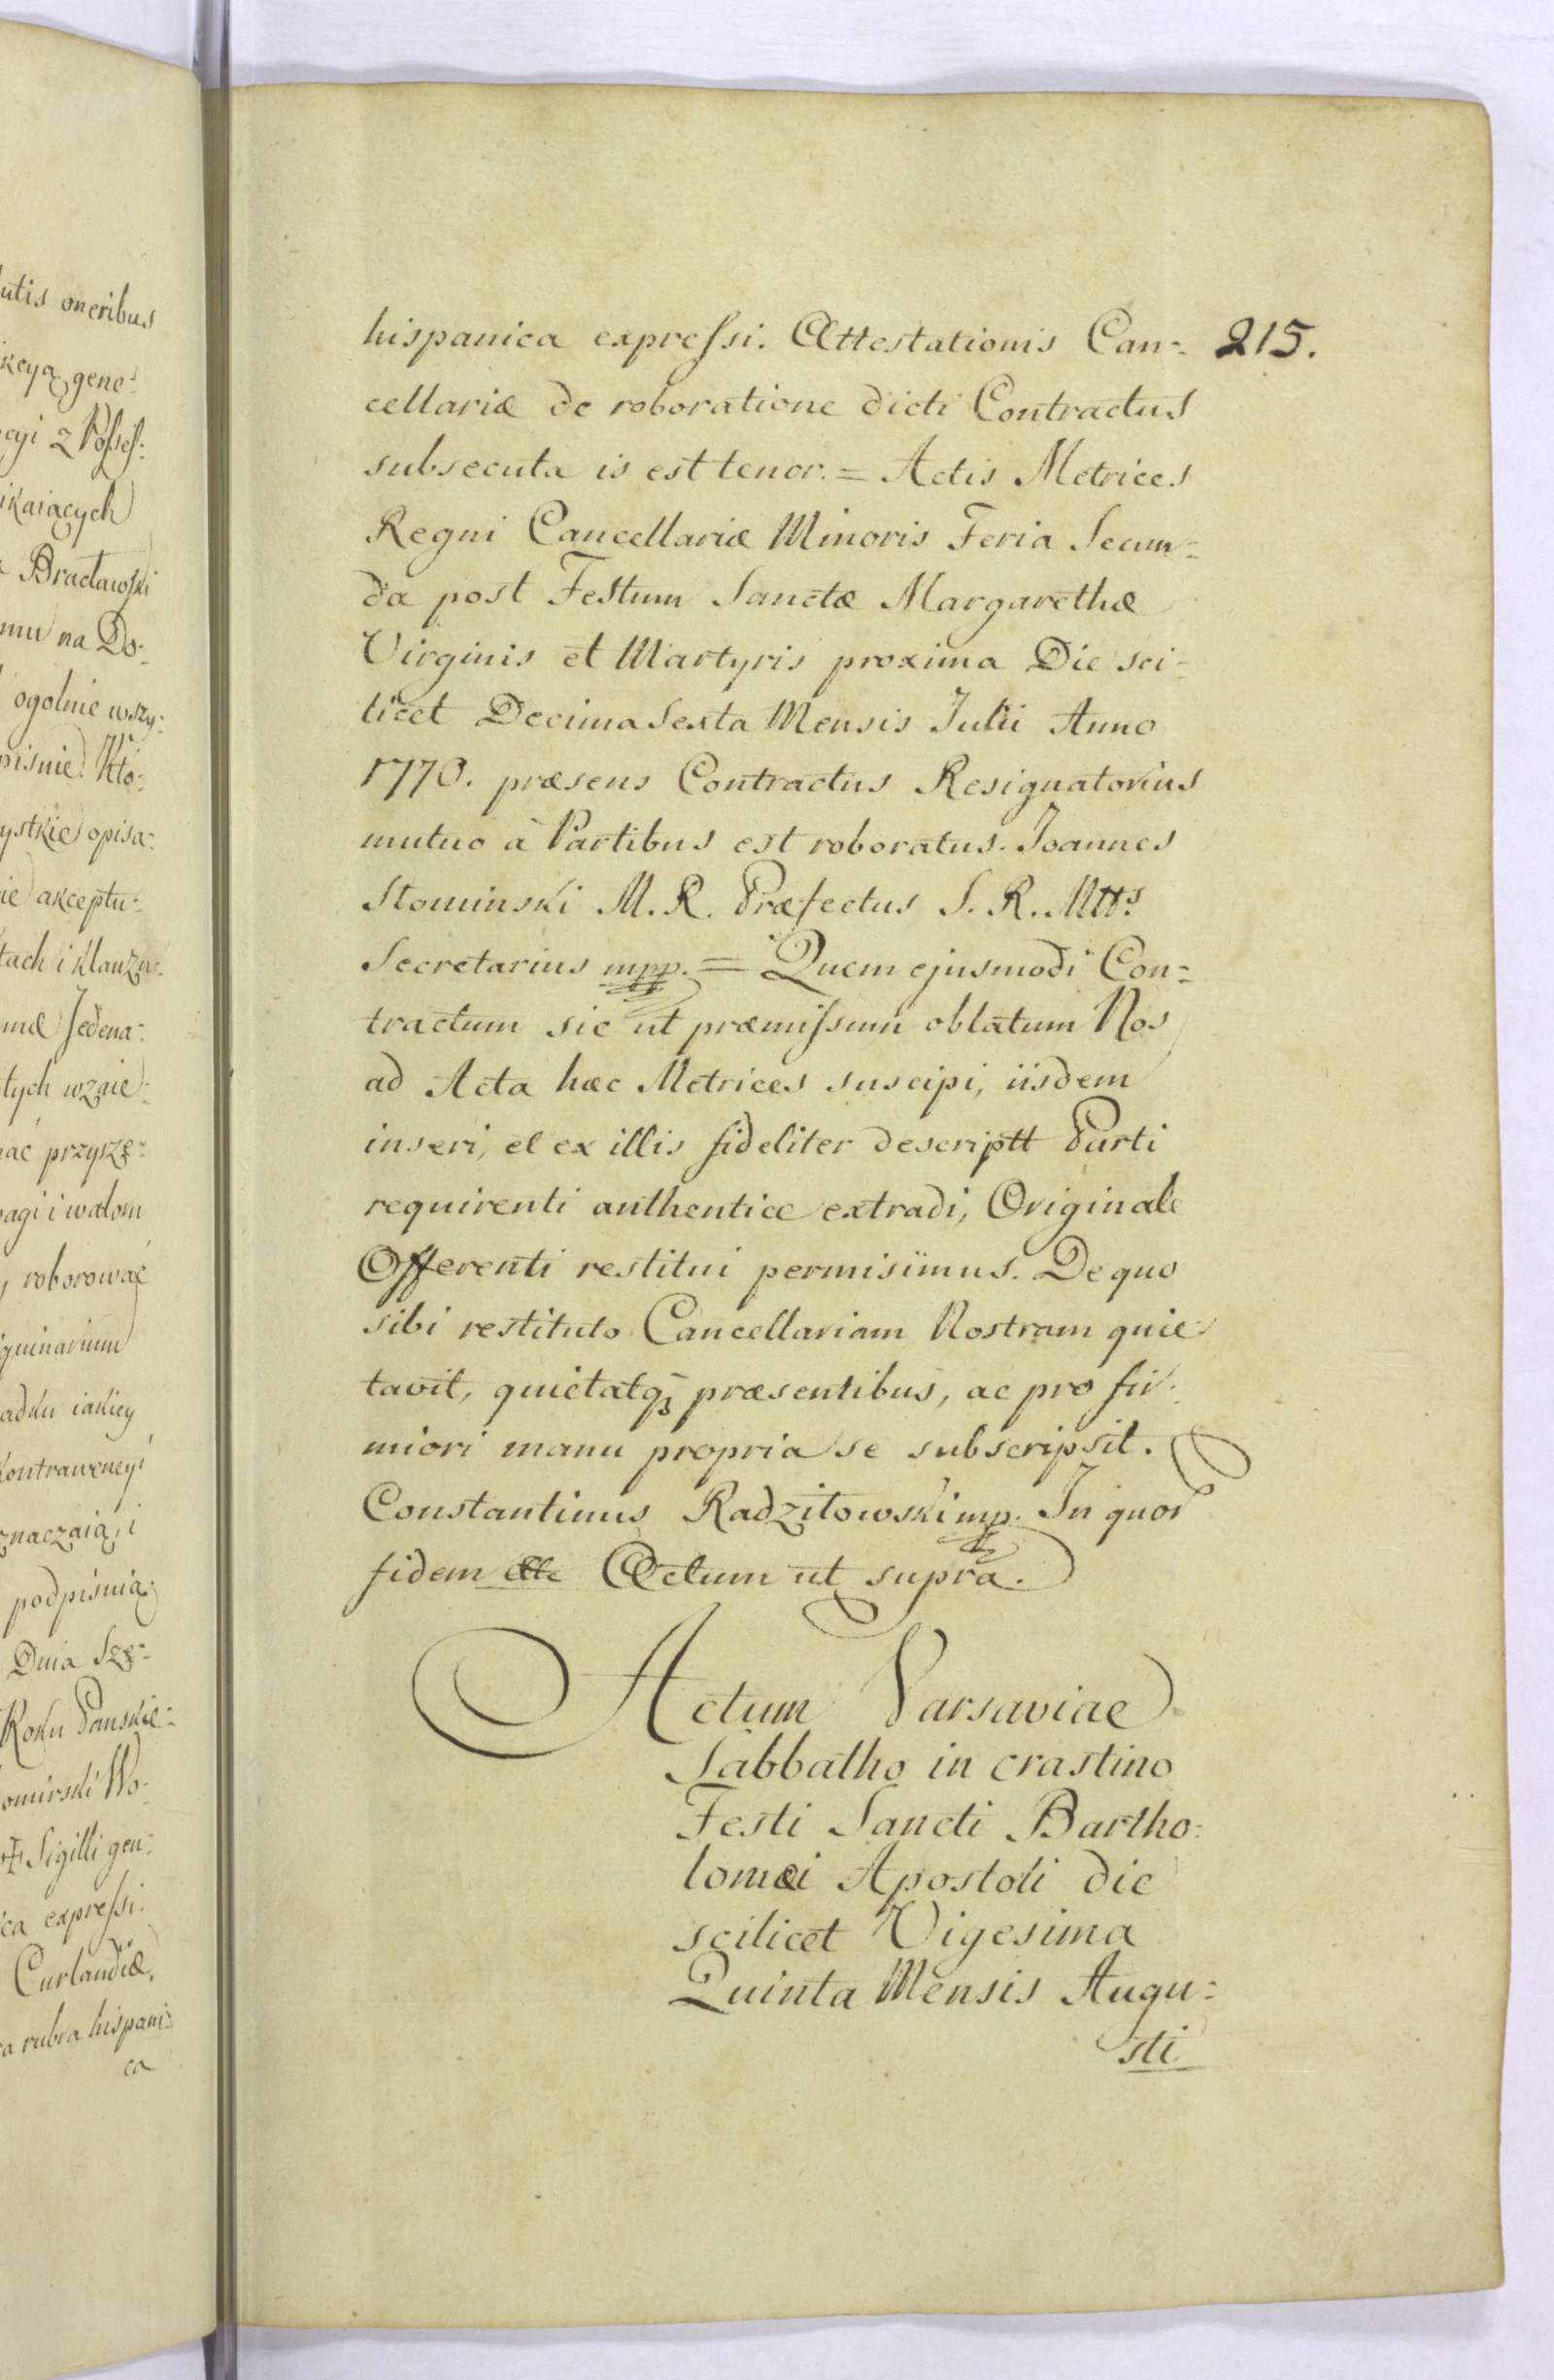 utis oneribus
kcyą gene-
cyi z Possess:
ikaiących
Bracławski
mu na Do-
ogolnie wszy-
pisnie. Kto-
ystkie opisa-
ie akceptu-
tach i klauzu-
mæ Jedena-
tych wzaie-
ać przysze-
agi i walom
roborować
quinarium
adku iakiey
kontrawencyi
znaczaią, i
podpisuią:
Dnia Szę-
Roku Panskie-
omirski Wo-
Sigilli gen-
ca expressi.
Curlandiæ,
a rubra hispani-
ca
hispanica expressi. Attestationis Can- 215.
cellariæ de roboratione dicti Contractus
subsecuta is est tenor. = Actis Metrices
Regni Cancellariæ Minoris Feria Secun-
da post Festum Sanctæ Margarethæ
Virginis et Martyris proxima Die sci-
licet Decima Sexta Mensis Julii Anno
1770. præsens Contractus Resignatorius
mutuo à Partibus est roboratus. Joannes
Słominski M. R. Præfectus S. R. Mtts
Secretarius mpp. = Quem ejusmodi Con-
tractum sic ut præmissum oblatum Nos
ad Acta hæc Metrices suscipi, iisdem
inseri, et ex illis fideliter descriptt Parti
requirenti authentice extradi, Originale
Offerenti restitui permisimus. De quo
sibi restituto Cancellariam Nostram quie-
tavit, quietatq; præsentibus, ac pro fir-
miori manu propria se subscripsit.
Constantinus Radziłowski mp. In quor
fidem etc Actum ut supra.
Actum Varsaviae
Sabbatho in crastino
Festi Sancti Bartho-
lomæi Apostoli die
scilicet Vigesima
Quinta Mensis Augu-
sti